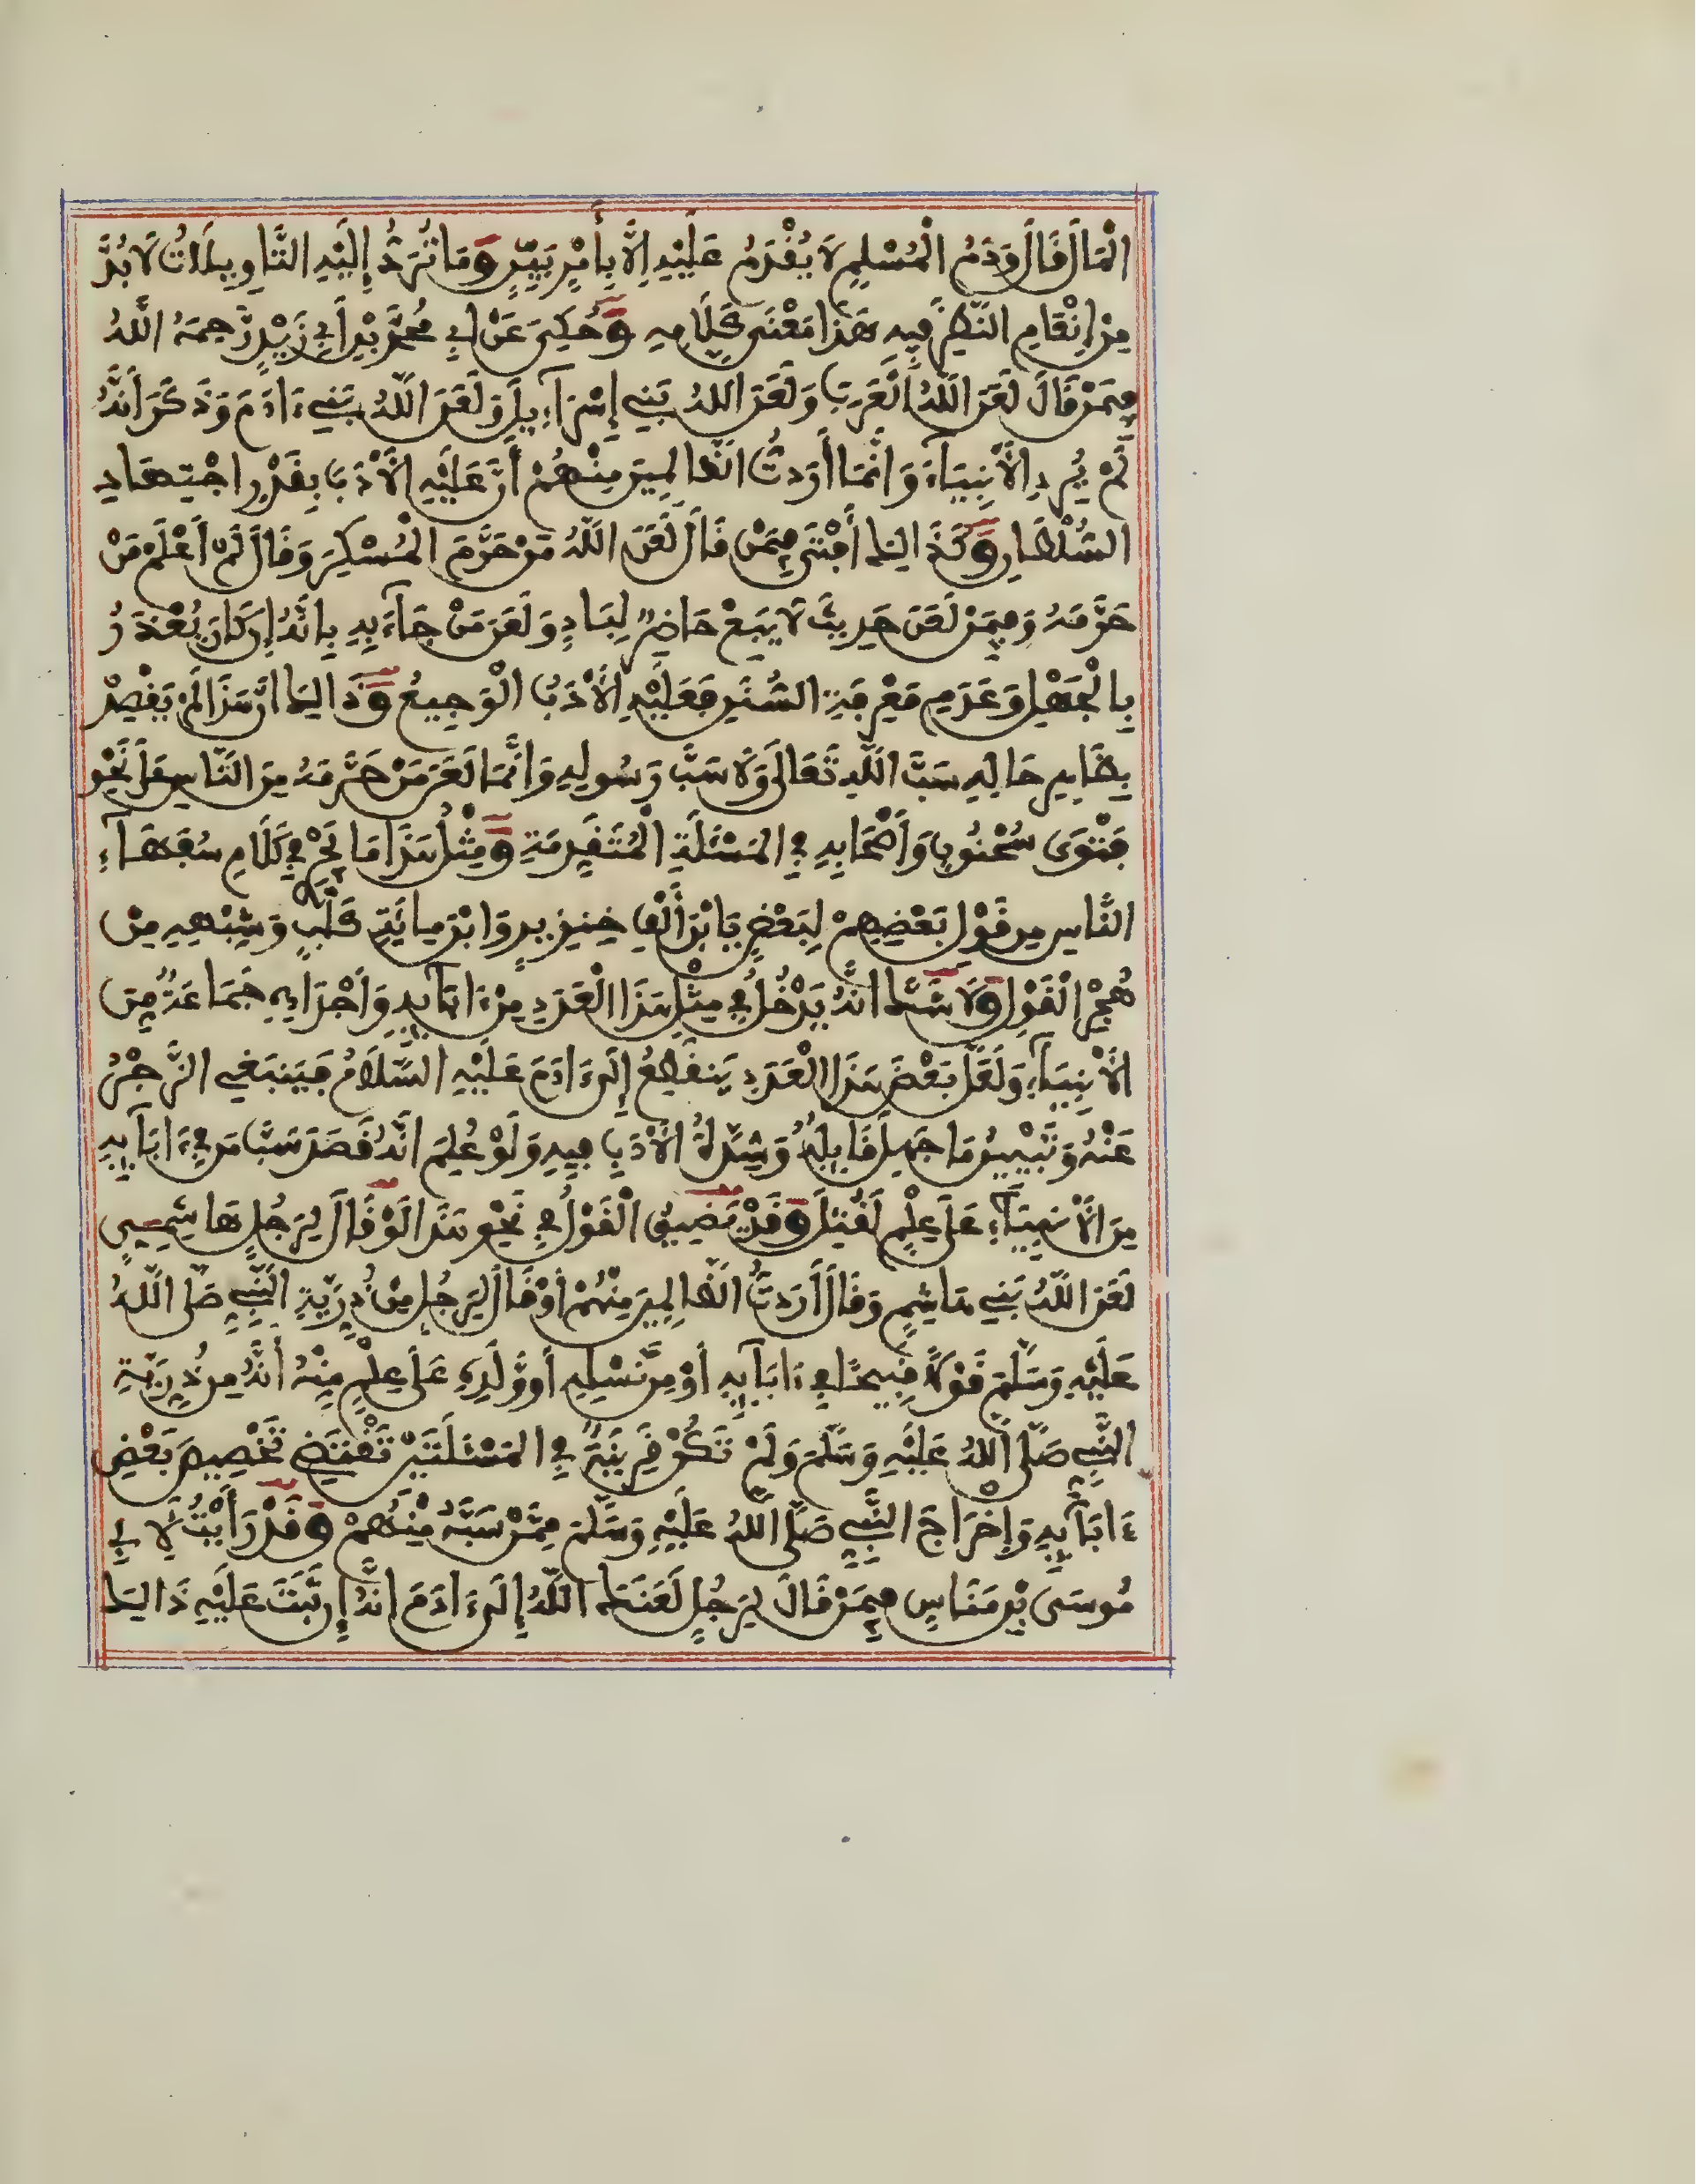 الْمَالَ قَالَ وَدَمُ الْمُسْلِمِ لَا يُقْدَمُ عَلَيْهِ إِلَّا بِأَمْرٍ بَيِّنٍ وَمَا تُرَدُّ إِلَيْهِ التَّاوِيلَاتُ لَا بُدَّ
مِنْ إِنْعَامِ النَّظَرِ فِيهِ هَذَا مَعْنَى كَلَامِهِ وَحُكِيَ عَنْ أَبِي مُحَمَّدِ بْنِ أَبِي زَيْدٍ رَحِمَهُ اللَّهُ
فِيمَنْ قَالَ لَعَنَ اللَّهُ الْعَرَبَ وَلَعَنَ اللَّهُ بَنِي إِسْرَآءِيلَ وَلَعَنَ اللَّهُ بَنِي ءَادَمَ وَذَكَرَ أَنَّهُ
لَمْ يُرِدِ الْأَنْبِيَآءَ وَإِنَّمَا أَرَدتُّ الظَّالِمِينَ مِنْهُمْ أَنَّ عَلَيْهِ الْأَدَبَ بِقَدْرِ اجْتِهَادِ
السُّلْطَانِ وَكَذَالِكَ أَفْتَى فِيمَنْ قَالَ لَعَنَ اللَّهُ مَنْ حَرَّمَ الْمُسْكِرَ وَقَالَ لَمْ أَعْلَمْ مَنْ
حَرَّمَهُ وَفِيمَنْ لَعَنَ حَدِيثَ لَا يَبِعْ حَاضِرٌ لِبَادٍ وَلَعَنَ مَنْ جَآءَ بِهِ بِأَنَّهُ إِنْ كَانَ يُعْذَرُ
بِالْجَهْلِ وَعَدَمِ مَعْرِفَةِ السُّنَنِ فَعَلَيْهِ الْأَدَبُ الْوَجِيعُ وَذَالِكَ أَنَّ هَذَا لَمْ يَقْصِدْ
بِظَاهِرِ حَالِهِ سَبَّ اللَّهِ تَعَالَى وَلَا سَبَّ رَسُولِهِ وَإِنَّمَا لَعَنَ مَنْ حَرَّمَهُ مِنَ النَّاسِ عَلَى نَحْوِ
فَتْوَى سُحْنُونٍ وَأَصْحَابِهِ فِي الْمَسْئَلَةِ الْمُتَقَدِّمَةِ وَمِثْلُ هَذَا مَا يَجْرِي فِي كَلَامِ سُفَهَآءِ
النَّاسِ مِنْ قَوْلِ بَعْضِهِمْ لِبَعْضٍ يَا ابْنَ أَلْفِ خِنْزِيرٍ وَابْنَ مِائَةِ كَلْبٍ وَشِبْهِهِ مِنْ
هُجْرِ الْقَوْلِ وَلَا شَكَّ أَنَّهُ يَدْخُلُ فِي مِثْلِ هَذَا الْعَدَدِ مِنْ ءَابَآئِهِ وَأَجْدَادِهِ جَمَاعَةٌ مِنَ
الْأَنْبِيَآءِ وَلَعَلَّ بَعْضَ هَذَا الْعَدَدِ يَنْقَطِعُ إِلَى ءَادَمَ عَلَيْهِ السَّلَامُ فَيَنْبَغِي الزَّجْرُ
عَنْهُ وَتَبْيِينُ مَا جَهِلَ قَائِلُهُ وَشِدَّةُ الْأَدَبِ فِيهِ وَلَوْ عُلِمَ أَنَّهُ قَصَدَ سَبَّ مَنْ فِي ءَابَآئِهِ
مِنَ الْأَنْبِيَآءِ عَلَى عِلْمٍ لَقُتِلَ وَقَدْ يُضَيَّقُ الْقَوْلُ فِي نَحْوِ هَذَا لَوْ قَالَ لِرَجُلٍ هَاشِمِيٍّ
لَعَنَ اللَّهُ بَنِي هَاشِمٍ وَقَالَ أَرَدتُّ الظَّالِمِينَ مِنْهُمْ أَوْ قَالَ لِرَجُلٍ مِنْ ذُرِّيَّةِ النَّبِيِّ صَلَّى اللَّهُ
عَلَيْهِ وَسَلَّمَ قَوْلًا قَبِيحًا فِي ءَابَآئِهِ أَوْ مِنْ نَسْلِهِ أَوْ وَلَدِهِ عَلَى عِلْمٍ مِنْهُ أَنَّهُ مِنْ ذُرِّيَّةِ
النَّبِيِّ صَلَّى اللَّهُ عَلَيْهِ وَسَلَّمَ وَلَمْ تَكُنْ قَرِينَةٌ فِي الْمَسْئَلَتَيْنِ تَقْتَضِي تَخْصِيصَ بَعْضِ
ءَابَآئِهِ وَإِخْرَاجَ النَّبِيِّ صَلَّى اللَّهُ عَلَيْهِ وَسَلَّمَ مِمَّنْ سَبَّهُ مِنْهُمْ وَقَدْ رَأَيْتُ لِأَبِي
مُوسَى بْنِ مَنَاسٍ فِيمَنْ قَالَ لِرَجُلٍ لَعَنَكَ اللَّهُ إِلَى ءَادَمَ أَنَّهُ إِنْ ثَبَتَ عَلَيْهِ ذَالِكَ